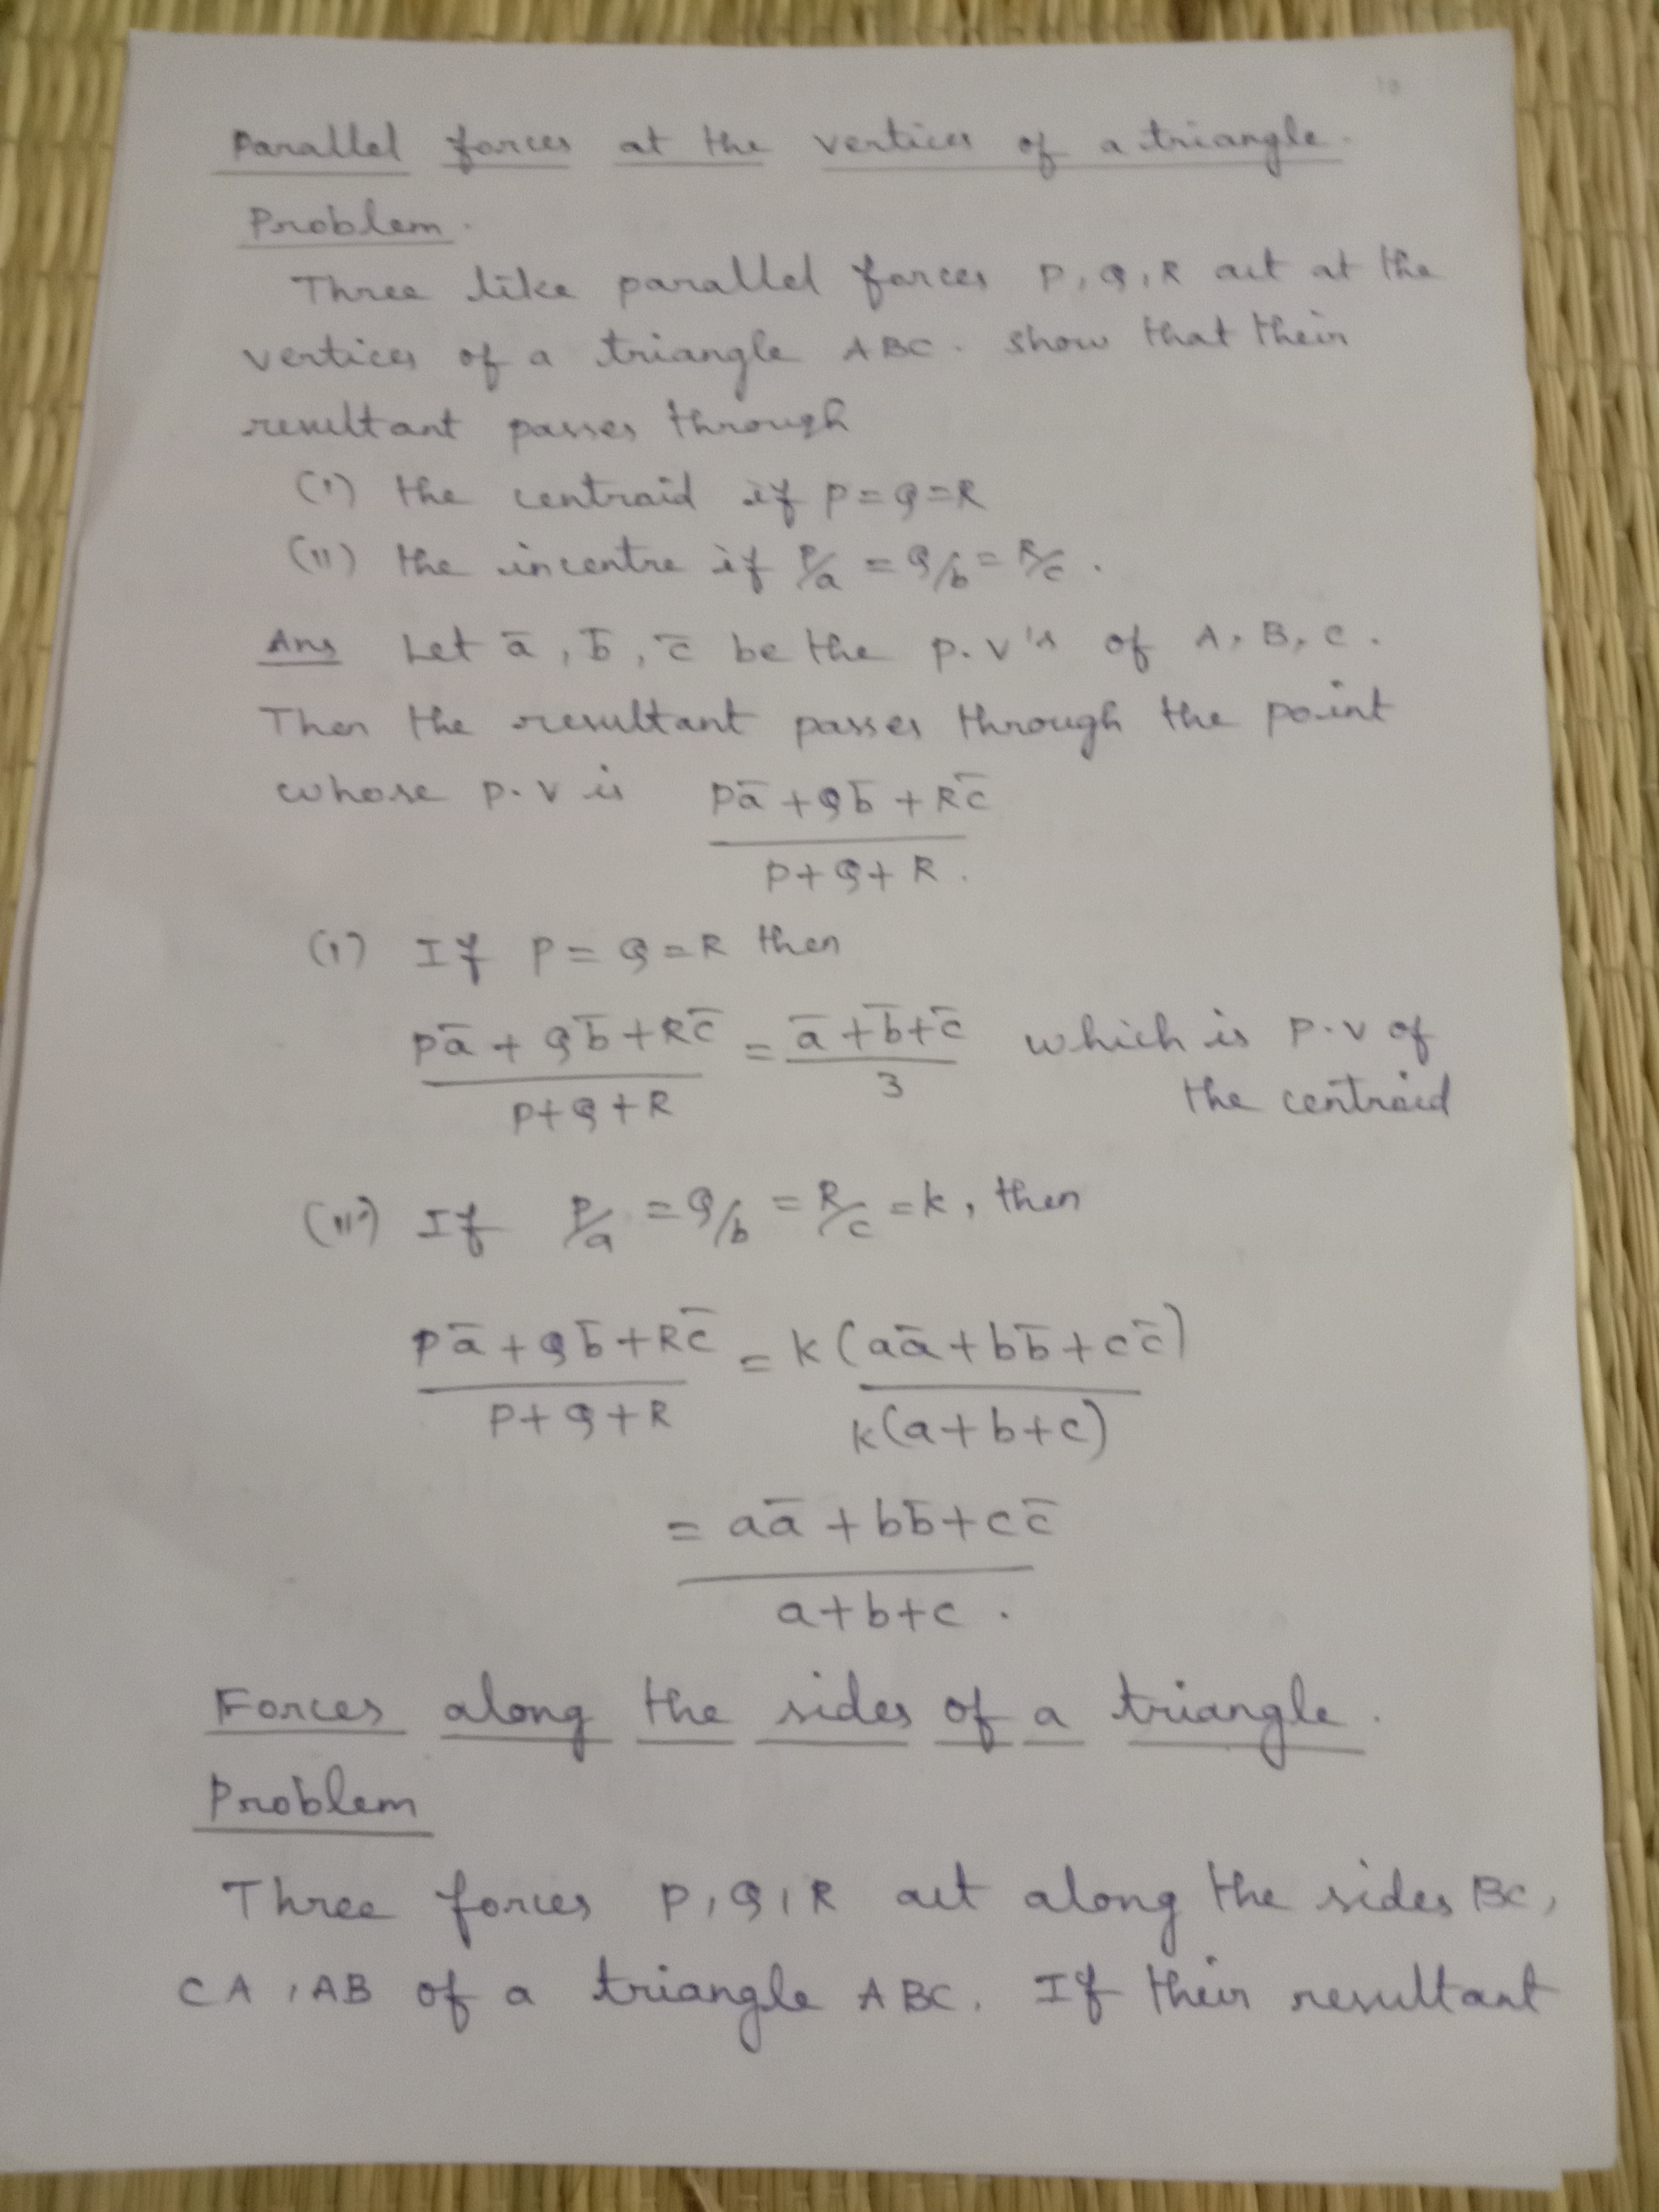 Parallel forces at the vertices of a triangle.
Problem.
Three like parallel forces P, Q, R act at the
vertices of a triangle ABC. Show that their
resultant passes through
(i) the centroid if P = Q = R
(ii) the incentre if P/a = Q/b = R/c.
Ans Let a̅, b̅, c̅ be the p.v's of A, B, C.
Then the resultant passes through the point
whose p.v is Pa̅ + Qb̅ + Rc̅
P + Q + R.
(i) If P = Q = R then
Pa̅ + Qb̅ + Rc̅ = a̅ + b̅ + c̅ which is p.v of
P + Q + R 3 the centroid
(ii) If P/a = Q/b = R/c = k, then
Pa̅ + Qb̅ + Rc̅ = k(aa̅ + bb̅ + cc̅)
P + Q + R k(a + b + c)
= aa̅ + bb̅ + cc̅
a + b + c.
Forces along the sides of a triangle.
Problem
Three forces P, Q, R act along the sides BC,
CA, AB of a triangle ABC. If their resultant